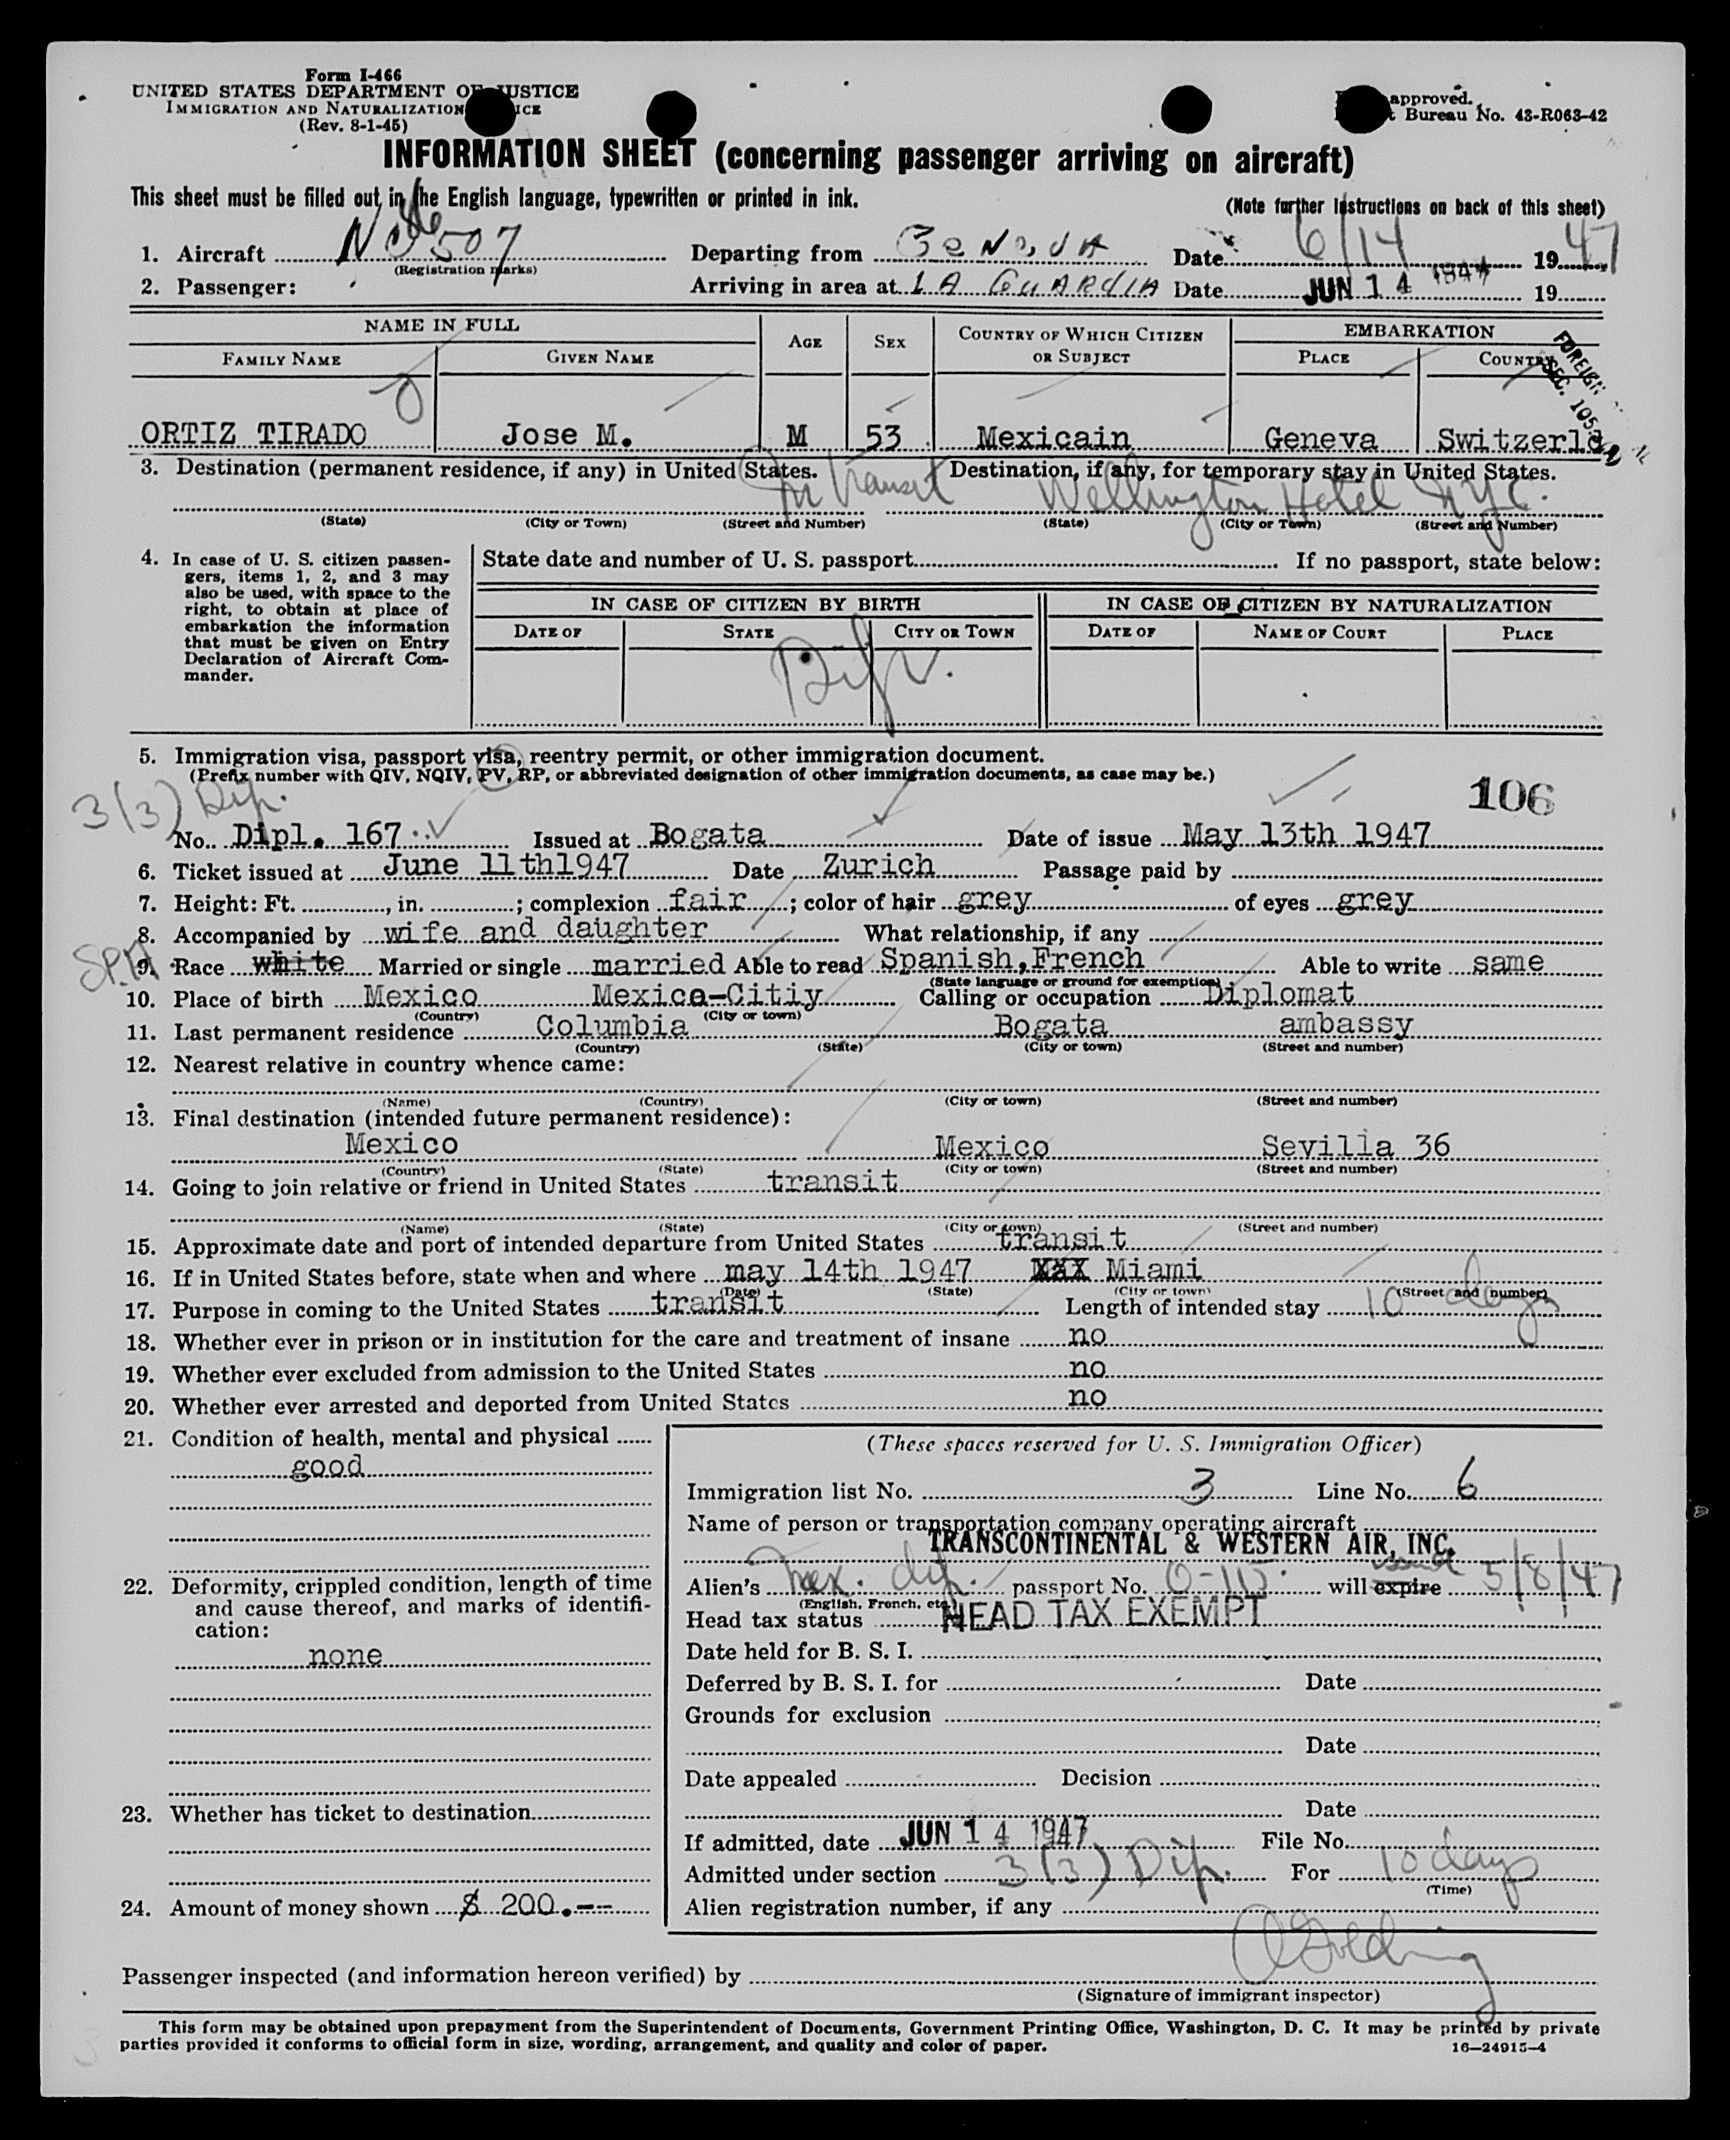 Form I-466
UNITED STATES DEPARTMENT OF JUSTICE
IMMIGRATION AND NATURALIZATION
(Rev. 8-1-45)
approved.
Bureau No. 43-R063-42
INFORMATION SHEET (concerning passenger arriving on aircraft)
This sheet must be filled out in the English language, typewritten or printed in ink.
(Note further instructions on back of this sheet)
1. Aircraft 507 Departing from Date 6/14 1947
(Registration marks)
2. Passenger: Arriving in area at LA GUARDIA Date JUN 14 1947 19
NAME IN FULL AGE SEX COUNTRY OF WHICH CITIZEN OR SUBJECT EMBARKATION
FAMILY NAME GIVEN NAME PLACE COUNTRY
FOREIGN
SEC. 105.
ORTIZ TIRADO Jose M. M 53 Mexicain Geneva Switzerld
3. Destination (permanent residence, if any) in United States. Destination, if any, for temporary stay in United States.
In transit Wellington Hotel NYC.
(State) (City or Town) (Street and Number) (State) (City or Town) (Street and Number)
4. In case of U. S. citizen passengers, items 1, 2, and 3 may
also be used, with space to the
right, to obtain at place of
embarkation the information
that must be given on Entry
Declaration of Aircraft Commander.
State date and number of U. S. passport If no passport, state below:
IN CASE OF CITIZEN BY BIRTH IN CASE OF CITIZEN BY NATURALIZATION
DATE OF STATE CITY OR TOWN DATE OF NAME OF COURT PLACE
5. Immigration visa, passport visa, reentry permit, or other immigration document.
(Prefix number with QIV, NQIV, PV, RP, or abbreviated designation of other immigration documents, as case may be.)
3(3) Dip.
106
No. Dipl. 167 Issued at Bogata Date of issue May 13th 1947
6. Ticket issued at June 11th1947 Date Zurich Passage paid by
7. Height: Ft. , in. ; complexion fair ; color of hair grey of eyes grey
8. Accompanied by wife and daughter What relationship, if any
SPA
9. Race white Married or single married Able to read Spanish,French Able to write same
(State language or ground for exemption)
10. Place of birth Mexico Mexico-Citiy Calling or occupation Diplomat
(Country) (City or town)
11. Last permanent residence Columbia Bogata ambassy
(Country) (State) (City or town) (Street and number)
12. Nearest relative in country whence came:
(Name) (Country) (City or town) (Street and number)
13. Final destination (intended future permanent residence):
Mexico Mexico Sevilla 36
(Country) (State) (City or town) (Street and number)
14. Going to join relative or friend in United States transit
(Name) (State) (City or town) (Street and number)
15. Approximate date and port of intended departure from United States transit
16. If in United States before, state when and where may 14th 1947 XXX Miami
(Date) (State) (City or town) (Street and number)
17. Purpose in coming to the United States transit Length of intended stay 10 days
18. Whether ever in prison or in institution for the care and treatment of insane no
19. Whether ever excluded from admission to the United States no
20. Whether ever arrested and deported from United States no
21. Condition of health, mental and physical
good
22. Deformity, crippled condition, length of time
and cause thereof, and marks of identification:
none
23. Whether has ticket to destination
24. Amount of money shown $ 200.--
(These spaces reserved for U. S. Immigration Officer)
Immigration list No. 3 Line No. 6
Name of person or transportation company operating aircraft
TRANSCONTINENTAL & WESTERN AIR, INC.
Alien's Mex. dip. passport No. 0-115. will expire issued 5/8/47
(English, French, etc.)
Head tax status HEAD TAX EXEMPT
Date held for B. S. I.
Deferred by B. S. I. for Date
Grounds for exclusion
Date
Date appealed Decision
Date
If admitted, date JUN 14 1947 File No.
Admitted under section 3(3) Dip. For 10 days
(Time)
Alien registration number, if any
Passenger inspected (and information hereon verified) by
(Signature of immigrant inspector)
This form may be obtained upon prepayment from the Superintendent of Documents, Government Printing Office, Washington, D. C. It may be printed by private
parties provided it conforms to official form in size, wording, arrangement, and quality and color of paper.
16—24915-4